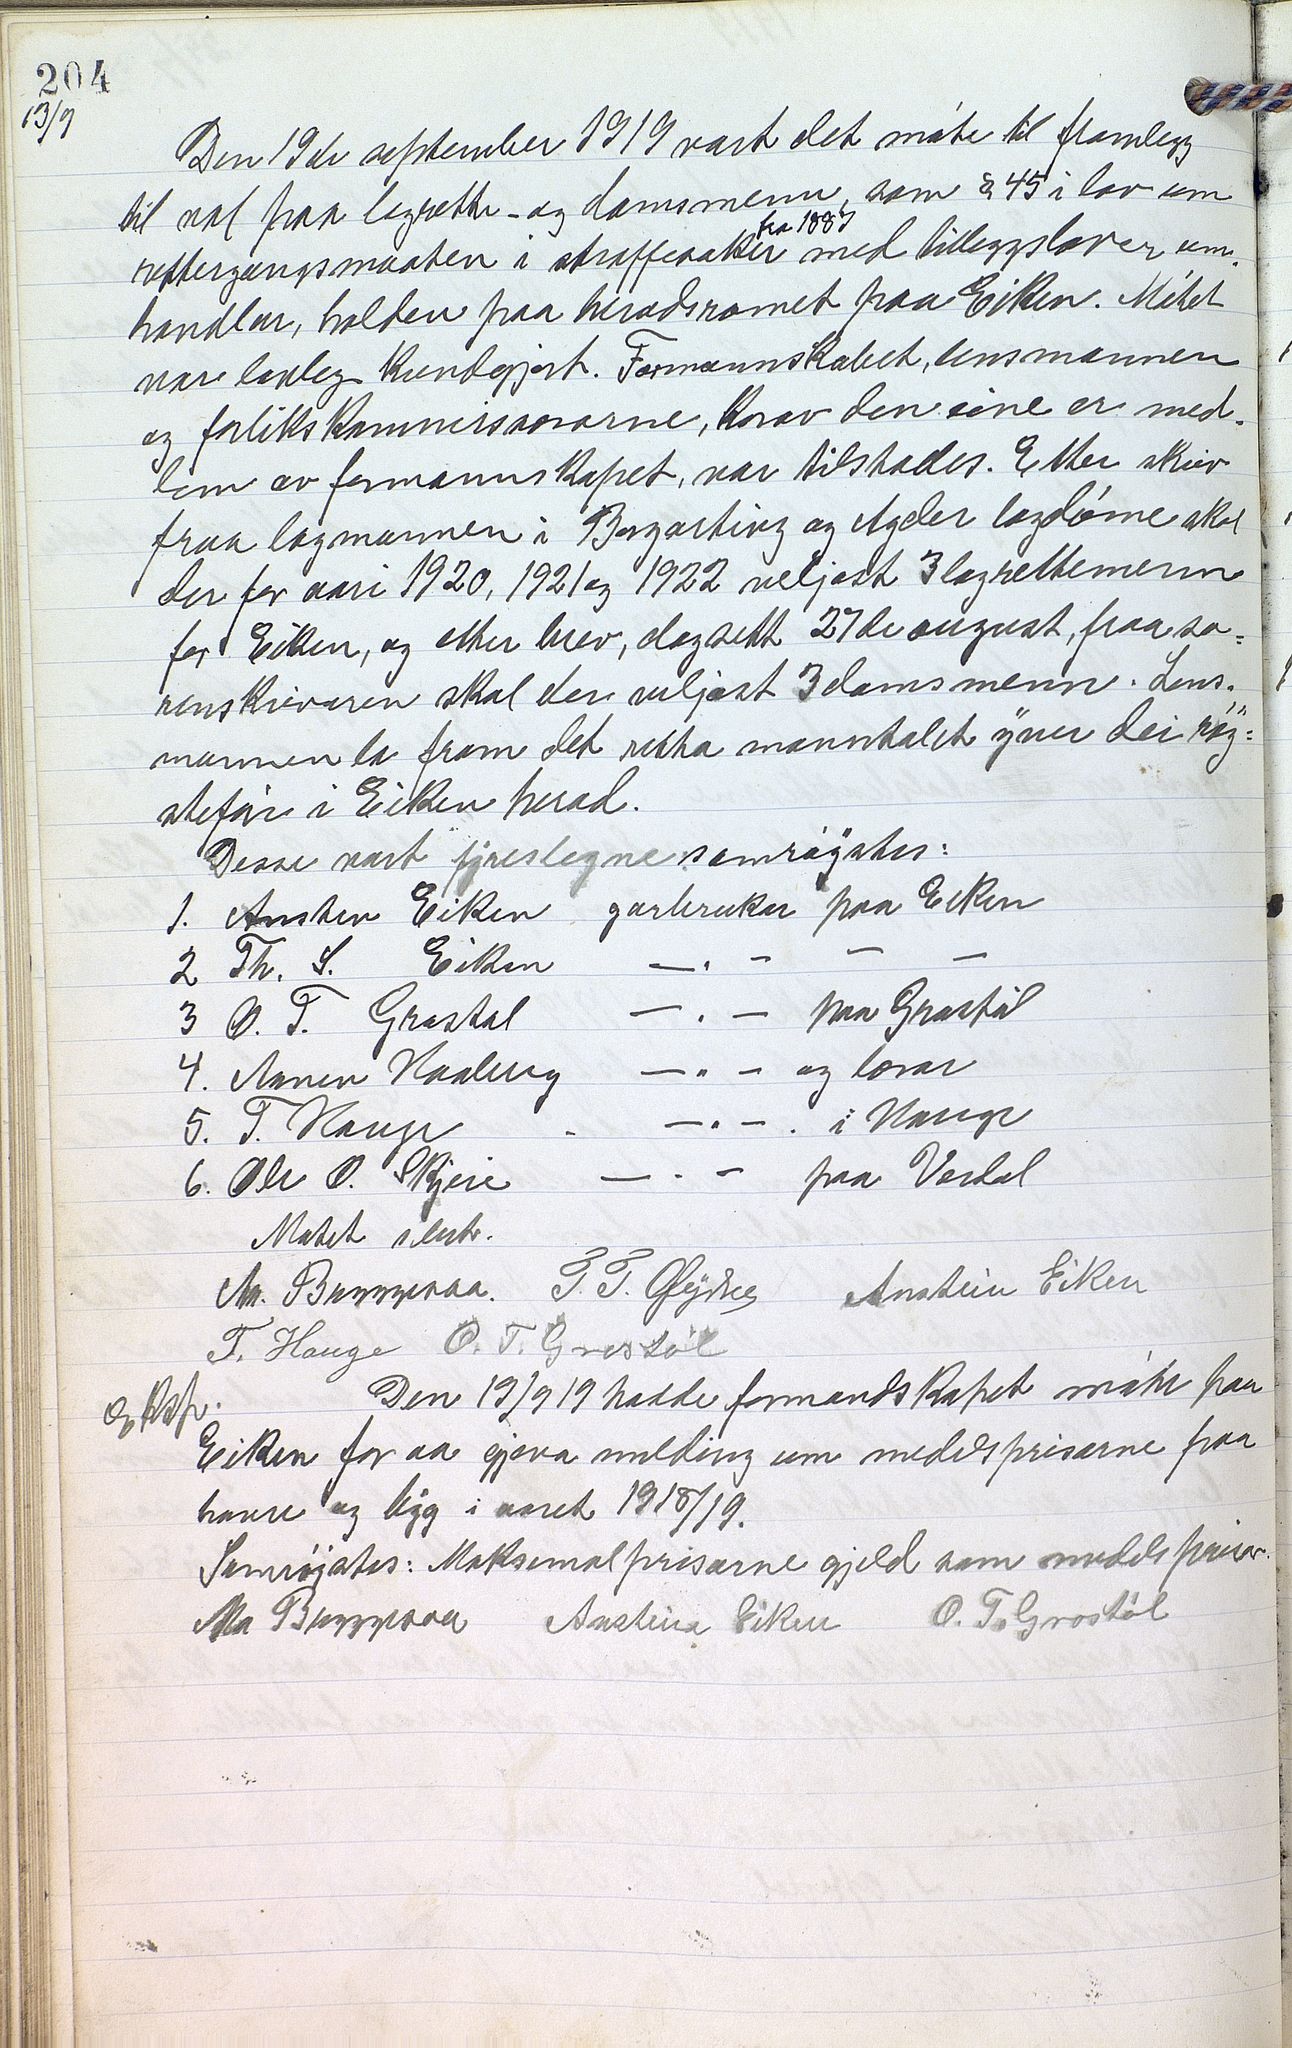 204
13/9
Den 19de september 1919 vart det móte til framlegg
til val paa lagrette- og domsmenn, som § 45 i lov um
rettergangsmaaten i straffesaker fra 1887 med tilleggslover um-
handlar, halden paa heradsromet paa Eiken. Mótet
var lovleg kundgjort. Formannskabet, lensmannen
og forlikskommissærarne, korav den eine er med-
lem av formannskapet, var tilstades. Etter skriv
fraa lagmannen i Borgarting og Agder lagdóme skal
der for aari 1920, 1921 og 1922 veljast 3 lagrettemenn
for Eiken, og etter brev, dagsett 27de august, fraa so-
renskrivaren skal der veljast 3 domsmenn. Lens-
mannen la fram det retta manntalet yver dei róy-
steføre i Eiken herad.
Desse vart fyreslegne samróystes:
1. Ansten Eiken garbrukar paa Eiken
2 Th. S. Eiken —.— — —
3 O. T. Grostøl —.— paa Grostøl
4. Aanen Haaberg —.— og lærar
5. T. Hauge —.— i Hauge
6. Ole O. Skjeie —.— paa Verdal
Mótet slutt.
T. T. Anstein Eiken
T. Hauge O. T. Grostøl
Eksp.
Den 19/9 19 hadde formandskapet móte paa
Eiken for aa gjeva melding um medelsprisarne paa
havre og bygg i aaret 1918/19.
Samróystes: Maksimalprisarne gjeld som medelsprisar.
Anstein Eiken O. T. Grostøl